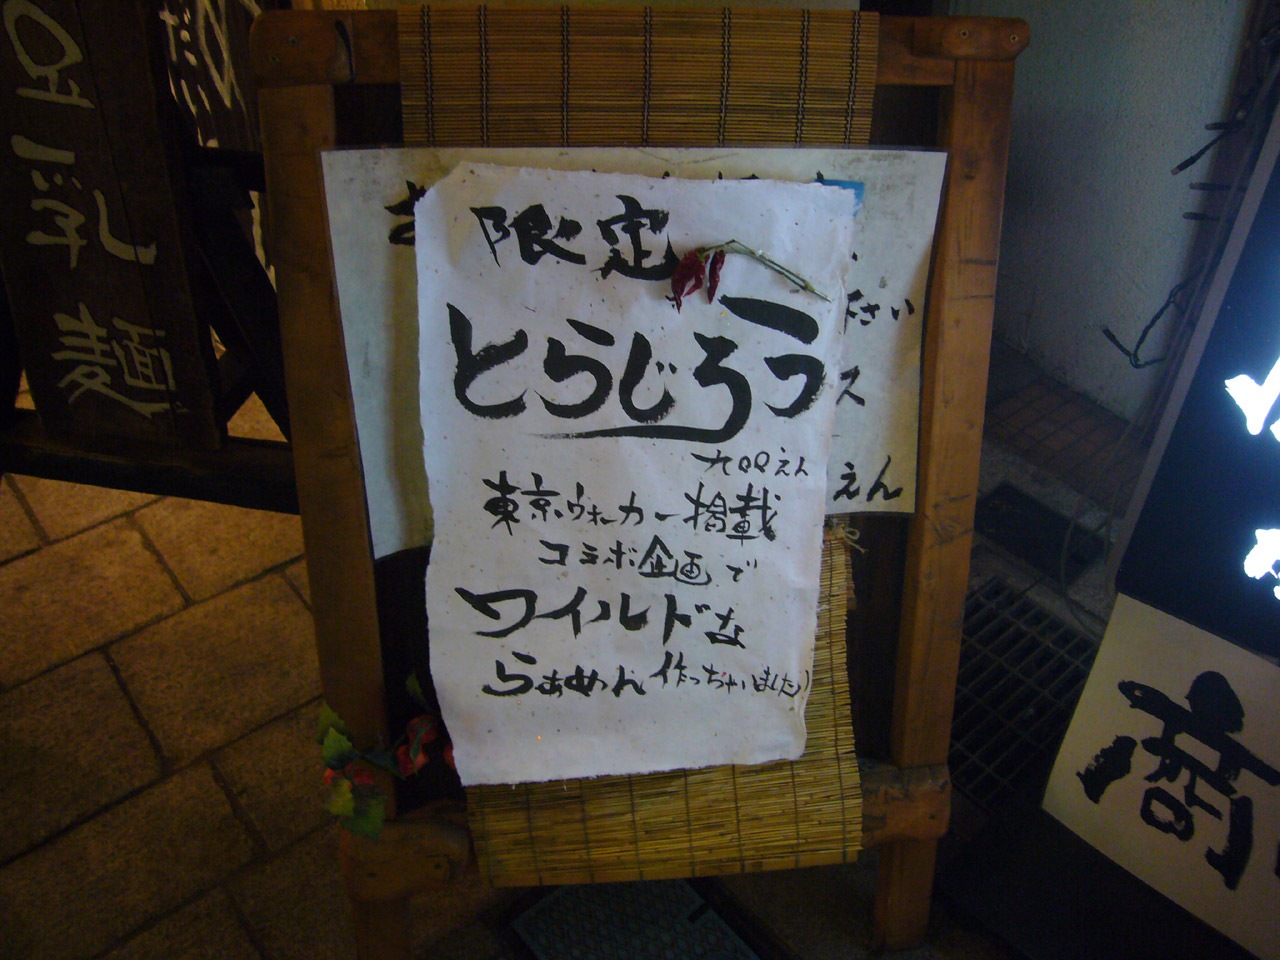 限定
とらじろう
九〇〇えん
東京ウォーカー掲載
コラボ企画で
ワイルドな
らぁめん作っちゃいました!
ださい
ス
えん
豆乳麺